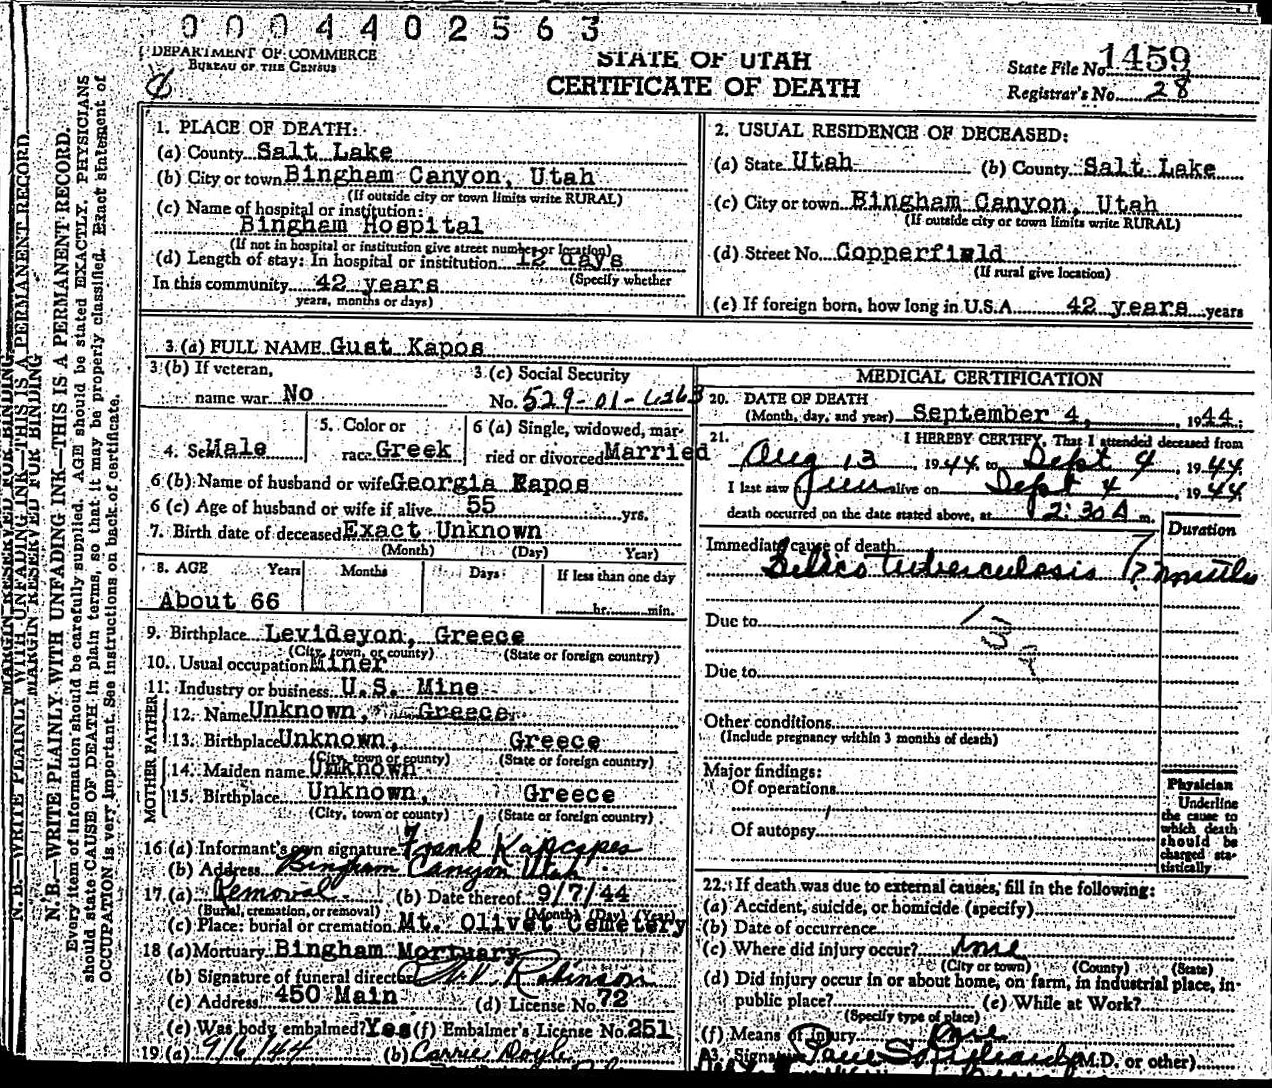 0 0 0 4 4 0 2 5 6 3
DEPARTMENT OF COMMERCE
BUREAU OF THE CENSUS
STATE OF UTAH
CERTIFICATE OF DEATH
State File No. 1459
Registrar's No. 28
MARGIN RESERVED FOR BINDING
N. B.—WRITE PLAINLY WITH UNFADING INK—THIS IS A PERMANENT RECORD.
MARGIN RESERVED FOR BINDING
N. B.—WRITE PLAINLY WITH UNFADING INK—THIS IS A PERMANENT RECORD.
Every item of information should be carefully supplied. AGE should be stated EXACTLY. PHYSICIANS
should state CAUSE OF DEATH in plain terms, so that it may be properly classified. Exact statement of
OCCUPATION is very important. See instructions on back of certificate.
1. PLACE OF DEATH:
(a) County Salt Lake
(b) City or town Bingham Canyon, Utah
(If outside city or town limits write RURAL)
(c) Name of hospital or institution:
Bingham Hospital
(If not in hospital or institution give street number or location)
(d) Length of stay: In hospital or institution 12 days
(Specify whether
In this community 42 years
years, months or days)
2. USUAL RESIDENCE OF DECEASED:
(a) State Utah (b) County Salt Lake
(c) City or town Bingham Canyon, Utah
(If outside city or town limits write RURAL)
(d) Street No. Copperfield
(If rural give location)
(e) If foreign born, how long in U.S.A. 42 years years
3. (a) FULL NAME Gust Kapos
3 (b) If veteran,
name war No
3 (c) Social Security
No. 529-01-6263
4. Sex Male
5. Color or
race Greek
6 (a) Single, widowed, mar-
ried or divorced Married
6 (b) Name of husband or wife Georgia Kapos
6 (c) Age of husband or wife if alive 55 yrs.
7. Birth date of deceased Exact Unknown
(Month) (Day) Year)
8. AGE Years Months Days If less than one day
About 66 hr. min.
9. Birthplace Levideyon, Greece
(City, town, or county) (State or foreign country)
10. Usual occupation Miner
11. Industry or business U.S. Mine
FATHER
12. Name Unknown, Greece
13. Birthplace Unknown, Greece
(City, town or county) (State or foreign country)
MOTHER
14. Maiden name Unknown
15. Birthplace Unknown, Greece
(City, town or county) (State or foreign country)
16 (a) Informant's own signature Frank Kapcapes
(b) Address Bingham Canyon Utah
17. (a) Removal (b) Date thereof 9/7/44
(Burial, cremation, or removal) (Month) (Day) (Year)
(c) Place: burial or cremation Mt. Olivet Cemetery
18 (a) Mortuary Bingham Mortuary
(b) Signature of funeral director Robinson
(c) Address 450 Main (d) License No. 72
(e) Was body embalmed? Yes (f) Embalmer's License No. 251
19 (a) 9/6/44 (b) Carrie Doyle
MEDICAL CERTIFICATION
20. DATE OF DEATH
(Month, day, and year) September 4, 1944.
21. I HEREBY CERTIFY, That I attended deceased from
Aug 13, 1944 to Sept 4, 1944.
I last saw him alive on Sept 4, 1944
death occurred on the date stated above, at 12:30 A m.
Duration
Immediate cause of death
tuberculosis ? months
Due to
Due to
Other conditions
(Include pregnancy within 3 months of death)
Major findings:
Of operations
Of autopsy
Physician
Underline
the cause to
which death
should be
charged sta-
tistically
22. If death was due to external causes, fill in the following:
(a) Accident, suicide, or homicide (specify)
(b) Date of occurrence
(c) Where did injury occur?
(City or town) (County) (State)
(d) Did injury occur in or about home, on farm, in industrial place, in
public place? (e) While at Work?
(Specify type of place)
(f) Means of Injury
23. Signature Paul S. (M.D. or other)